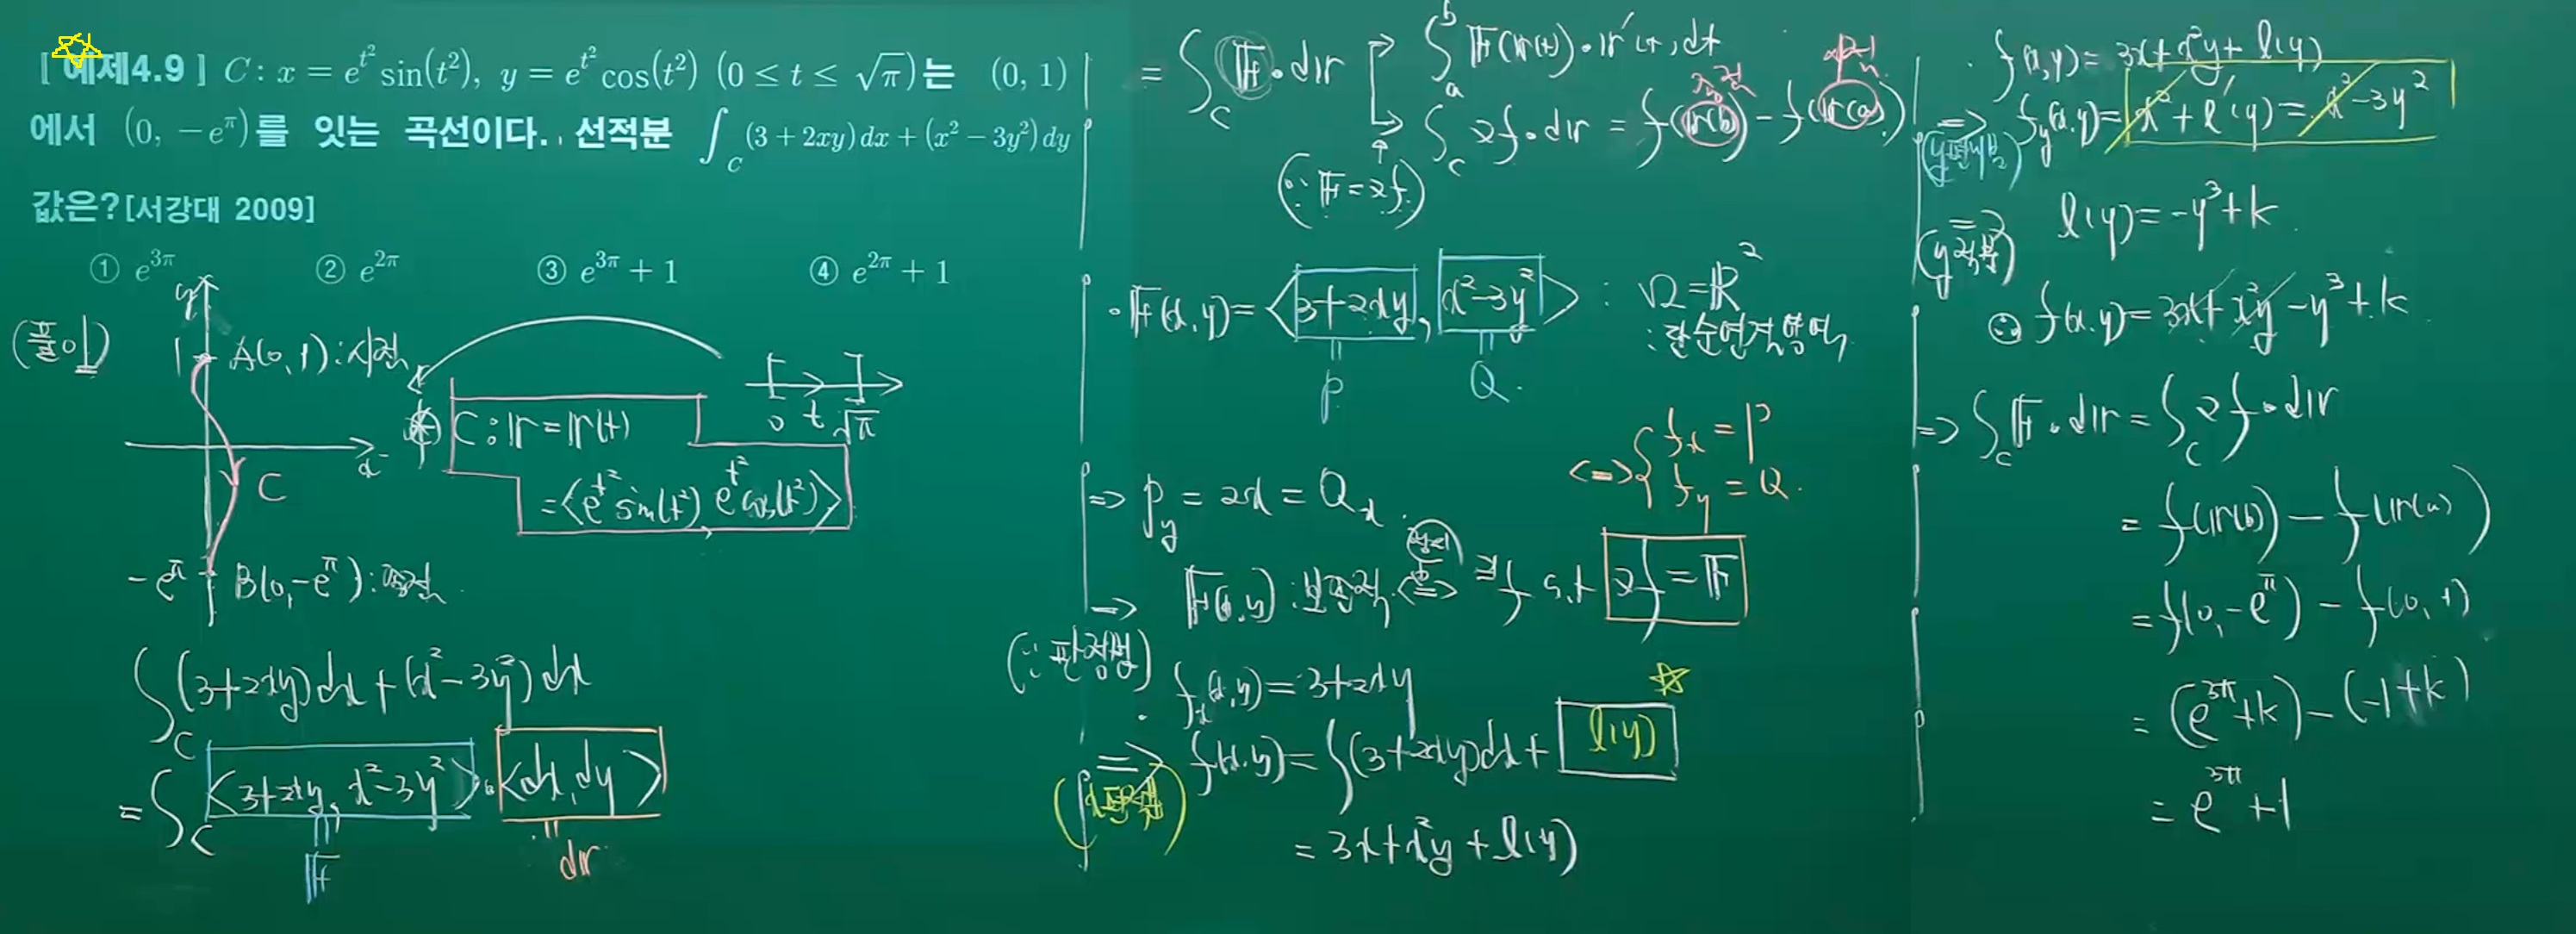 [예제4.9] C : x = e^{t^2} sin(t^2), y = e^{t^2} cos(t^2) (0 ≤ t ≤ √π)는 (0, 1)
에서 (0, −e^π)를 잇는 곡선이다. 선적분 ∫_C (3 + 2xy) dx + (x^2 − 3y^2) dy
값은? [서강대 2009]
① e^{3π} ② e^{2π} ③ e^{3π} + 1 ④ e^{2π} + 1
(풀이)
y
1 A(0, 1) : 시점
x
C
-e^π B(0, -e^π) : 종점
0 t √π
(*) C : r = r(t)
= <e^{t^2} sin(t^2), e^{t^2} cos(t^2)>
∫_C (3+2xy)dx + (x^2-3y^2)dx
= ∫_C <3+2xy, x^2-3y^2> · <dx, dy>
= F
= dr
= ∫_C F · dr
∫_a^b F(r(t)) · r'(t) dt
종점
시점
∫_C ∇f · dr = f(r(b)) - f(r(a))
(∵ F = ∇f)
· F(x, y) = <3+2xy, x^2-3y^2> : Ω = R^2
: 단순연결영역
P Q
⇒ P_y = 2x = Q_x
⇔ { f_x = P
f_y = Q.
⇒ F(x, y) : 보존장 ⇔ ∃f s.t ∇f = F
정의
(∵ 판정법)
· f_x(x, y) = 3+2xy
⇒ f(x, y) = ∫(3+2xy)dx + l(y)
= 3x + x^2y + l(y)
· f(x, y) = 3x + x^2y + l(y)
⇒ f_y(x, y) = x^2 + l'(y) = x^2 - 3y^2
⇒ l(y) = -y^3 + k
(y적분)
∴ f(x, y) = 3x + x^2y - y^3 + k
⇒ ∫_C F · dr = ∫_C ∇f · dr
= f(r(b)) - f(r(a))
= f(0, -e^π) - f(0, 1)
= (e^{3π} + k) - (-1 + k)
= e^{3π} + 1